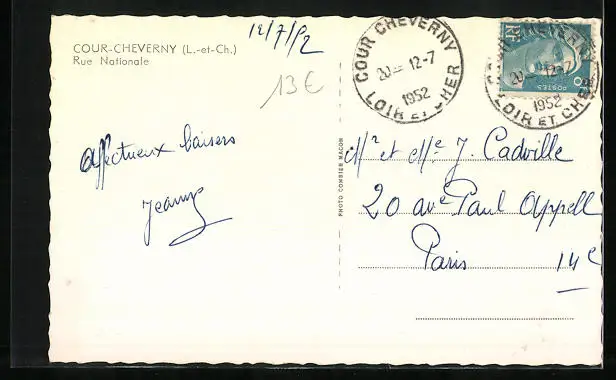 COUR-CHEVERNY (L.-et-Ch.)
Rue Nationale
12/7/52
13€
Affectueux baisers
Jeanne
PHOTO COMBIER MACON
COUR CHEVERNY
20H 12-7
1952
LOIR ET CHER
COUR CHEVERNY
20H 12-7
1952
LOIR ET CHER
POSTES
8F
Mr et Me J. Cadville
20 ave Paul Appell
Paris 14e